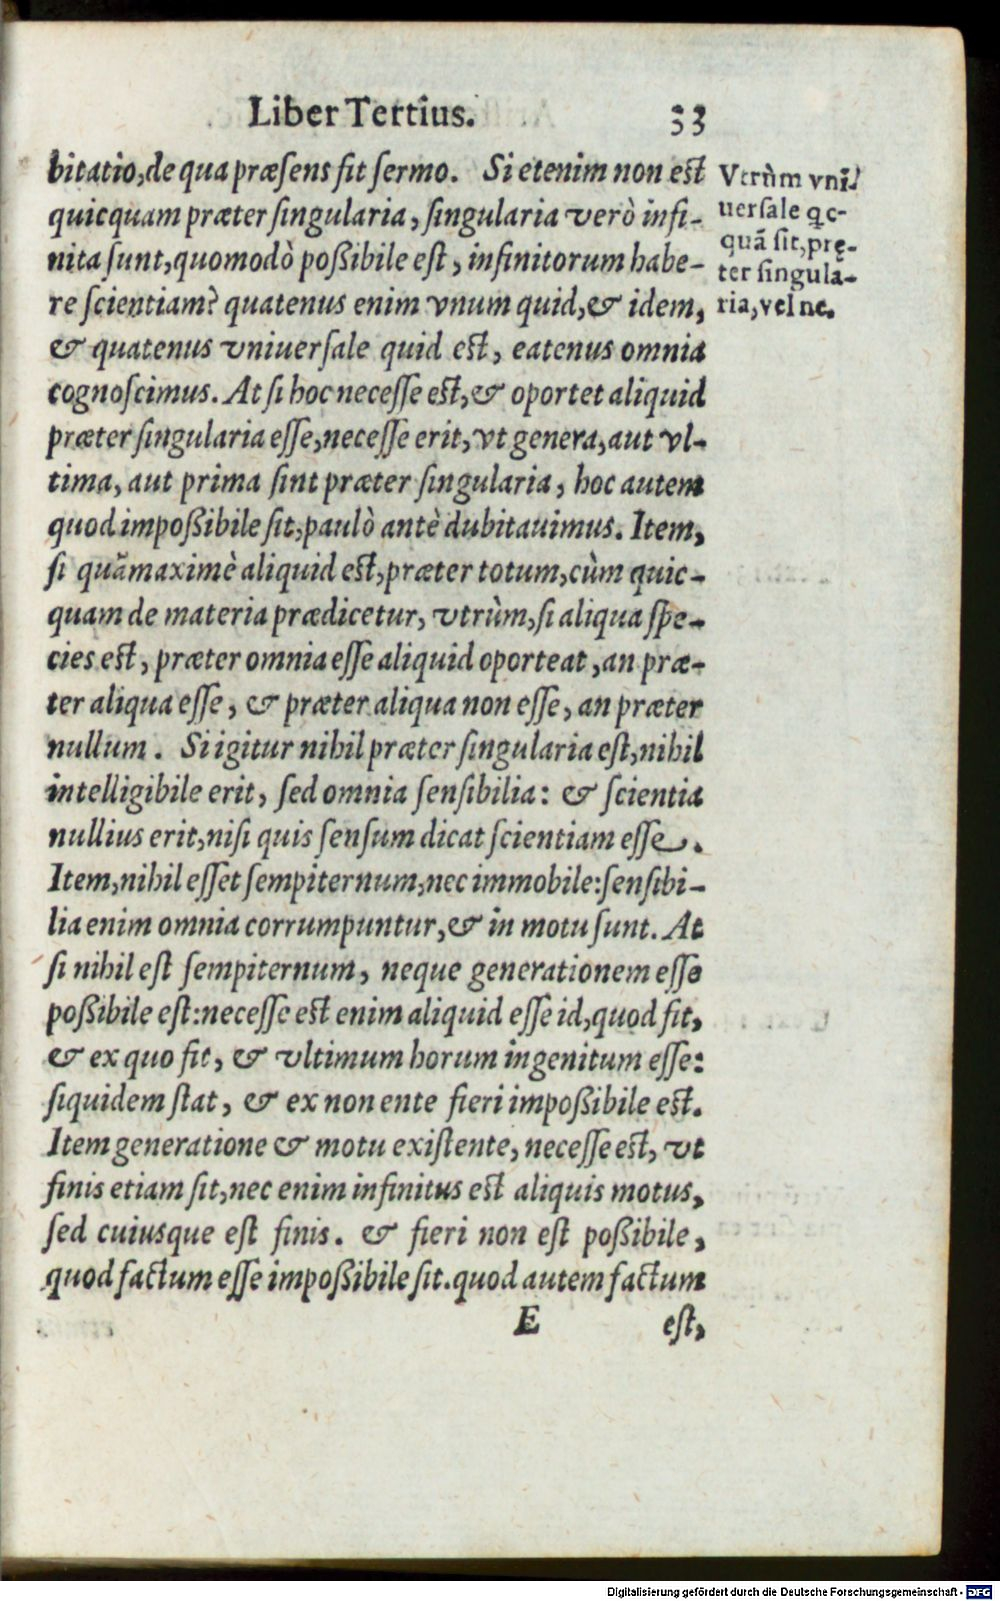 Liber Tertius. 33
bitatio, de qua præsens fit sermo. Si etenim non est
quicquam præter singularia, singularia verò infi-
nita sunt, quomodò poßibile est, infinitorum habe-
re scientiam? quatenus enim vnum quid, & idem,
& quatenus vniuersale quid est, eatenus omnia
cognoscimus. At si hoc necesse est, & oportet aliquid
præter singularia esse, necesse erit, vt genera, aut vl-
tima, aut prima sint præter singularia, hoc autem
quod impoßibile sit, paulò antè dubitauimus. Item,
si quãmaximè aliquid est, præter totum, cùm quic-
quam de materia prædicetur, vtrùm, si aliqua spe-
cies est, præter omnia esse aliquid oporteat, an præ-
ter aliqua esse, & præter aliqua non esse, an præter
nullum. Si igitur nihil præter singularia est, nihil
intelligibile erit, sed omnia sensibilia: & scientia
nullius erit, nisi quis sensum dicat scientiam esse.
Item, nihil esset sempiternum, nec immobile: sensibi-
lia enim omnia corrumpuntur, & in motu sunt. At
si nihil est sempiternum, neque generationem esse
poßibile est: necesse est enim aliquid esse id, quod fit,
& ex quo fit, & vltimum horum ingenitum esse:
siquidem stat, & ex non ente fieri impoßibile est.
Item generatione & motu existente, necesse est, vt
finis etiam sit, nec enim infinitus est aliquis motus,
sed cuiusque est finis. & fieri non est poßibile,
quod factum esse impoßibile sit. quod autem factum
E est,
Vtrùm vni
uersale qc-
quã sit, prę-
ter singula-
ria, vel ne.
Digitalisierung gefördert durch die Deutsche Forschungsgemeinschaft - DFG